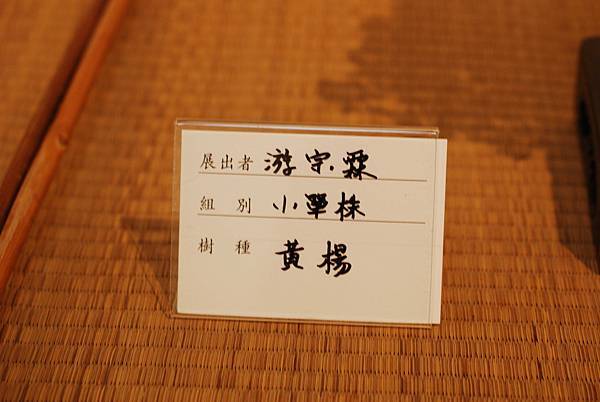 展出者 游宗霖
組別 小單株
樹種 黃楊